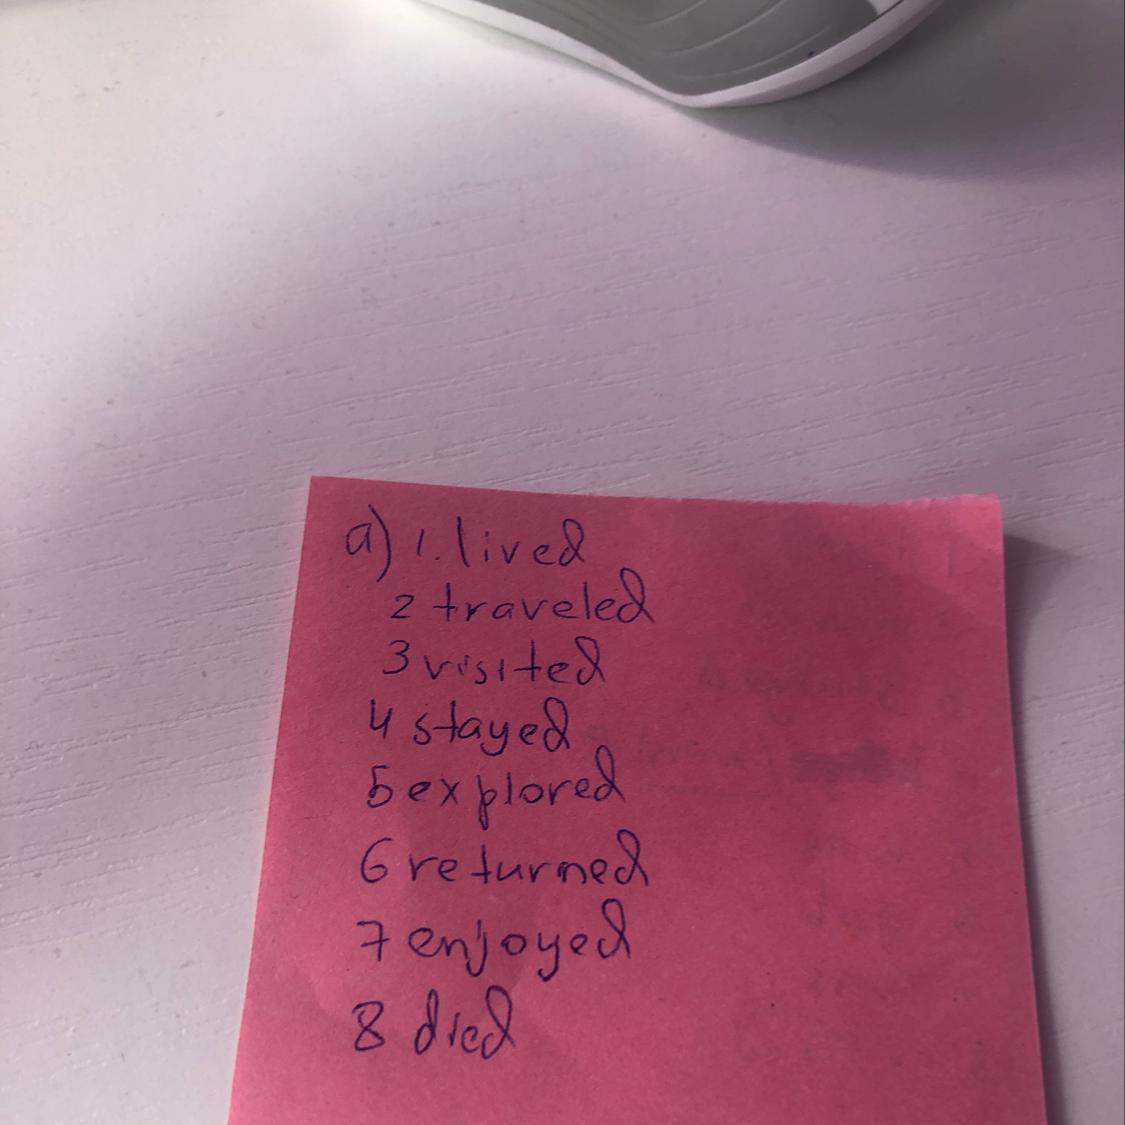 a) 1. lived
2 traveled
3 visited
4 stayed
5 explored
6 returned
7 enjoyed
8 died